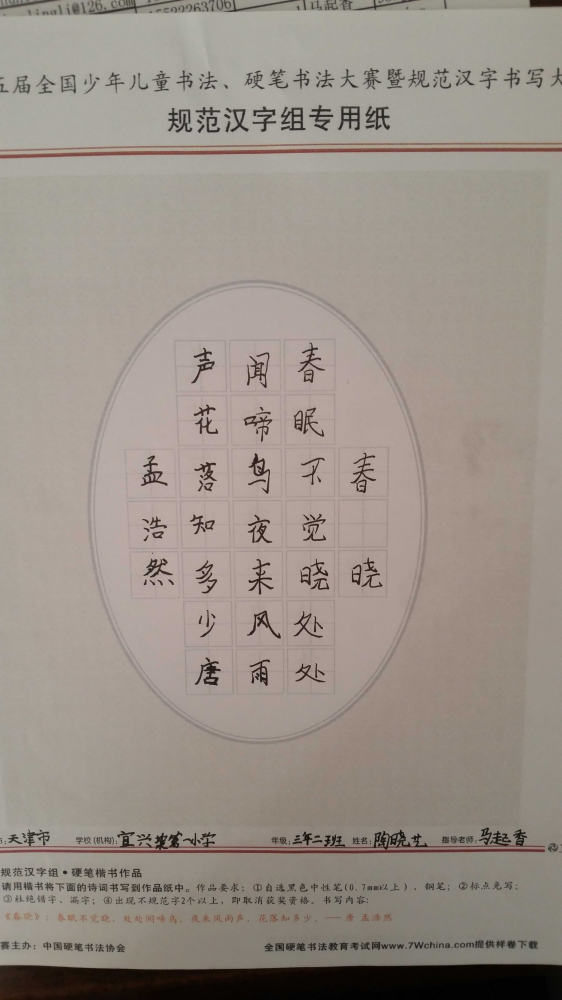 lingli@126.com 15522263706 马起香
五届全国少年儿童书法、硬笔书法大赛暨规范汉字书写大
规范汉字组专用纸
春晓
春眠不觉晓处处
闻啼鸟夜来风雨
声花落知多少唐
孟浩然
天津市 学校(机构): 宜兴埠第一小学 年级: 三年二班 姓名: 陶晓艺 指导老师: 马起香
规范汉字组·硬笔楷书作品
请用楷书将下面的诗词书写到作品纸中。作品要求：①自选黑色中性笔(0.7mm以上)、钢笔；②标点免写；
③杜绝错字、漏字；④出现不规范字2个以上，即取消获奖资格。书写内容：
《春晓》：春眠不觉晓，处处闻啼鸟。夜来风雨声，花落知多少。—— 唐 孟浩然
赛主办：中国硬笔书法协会 全国硬笔书法教育考试网www.7Wchina.com提供样卷下载